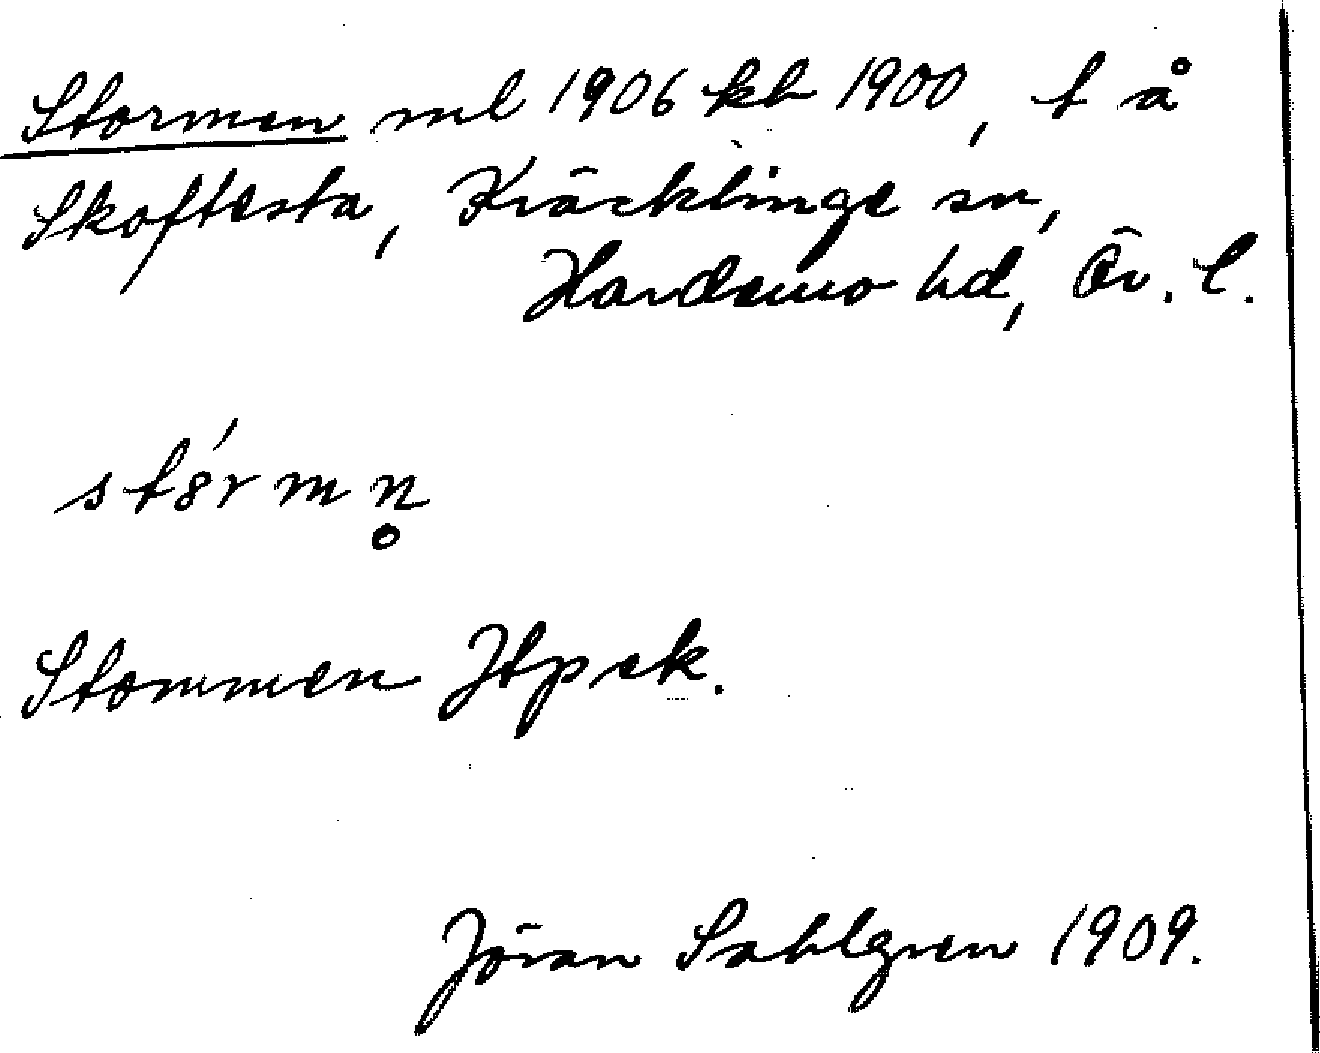 Stormen ml 1906 kb 1900, t å
Skoftesta, Kräcklinge sn,
Hardemo hd, Ör. l.
stȣ́rmn̥
Stommen Htpsk.
Jöran Sahlgren 1909.